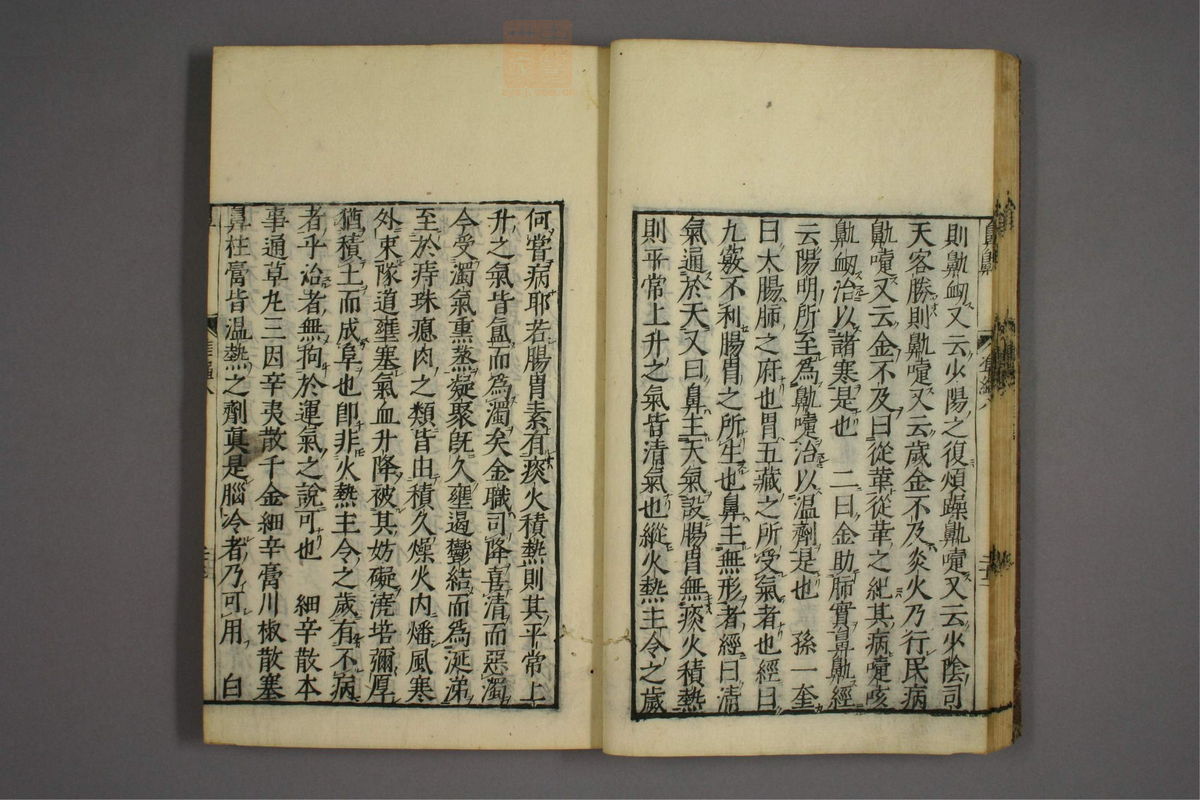 則鼽衂又云少陽之復煩躁鼽嚏又云少陰司
天客勝則鼽嚏又云歲金不及炎火乃行民病
鼽嚏又云金不及曰從革從革之紀其病嚏咳
鼽衂治以諸寒是也　二曰金助肺實鼻鼽經
云陽明所至爲鼽嚏治以温劑是也　孫一奎
曰大腸肺之府也胃五藏之所受氣者也經曰
九竅不利腸胃之所生也鼻主無形者經曰清
氣通於天又曰鼻主天氣設腸胃無痰火積熱
則平常上升之氣皆清氣也縱火熱主令之歲
何嘗病耶若腸胃素有痰火積熱則其平常上
升之氣皆氲而爲濁矣金職司降喜清而惡濁
今受濁氣熏蒸凝聚旣久壅遏鬱結而爲涎涕
至於痔珠瘜肉之類皆由積久燥火内燔風寒
外束隊道壅塞氣血升降被其妨礙澆培彌厚
猶積土而成阜也卽非火熱主令之歲有不病
者乎治者無狥於運氣之說可也　細辛散本
事通草九三因辛夷散千金細辛膏川椒散塞
鼻柱膏皆温熱之劑眞是腦冷者乃可用　白